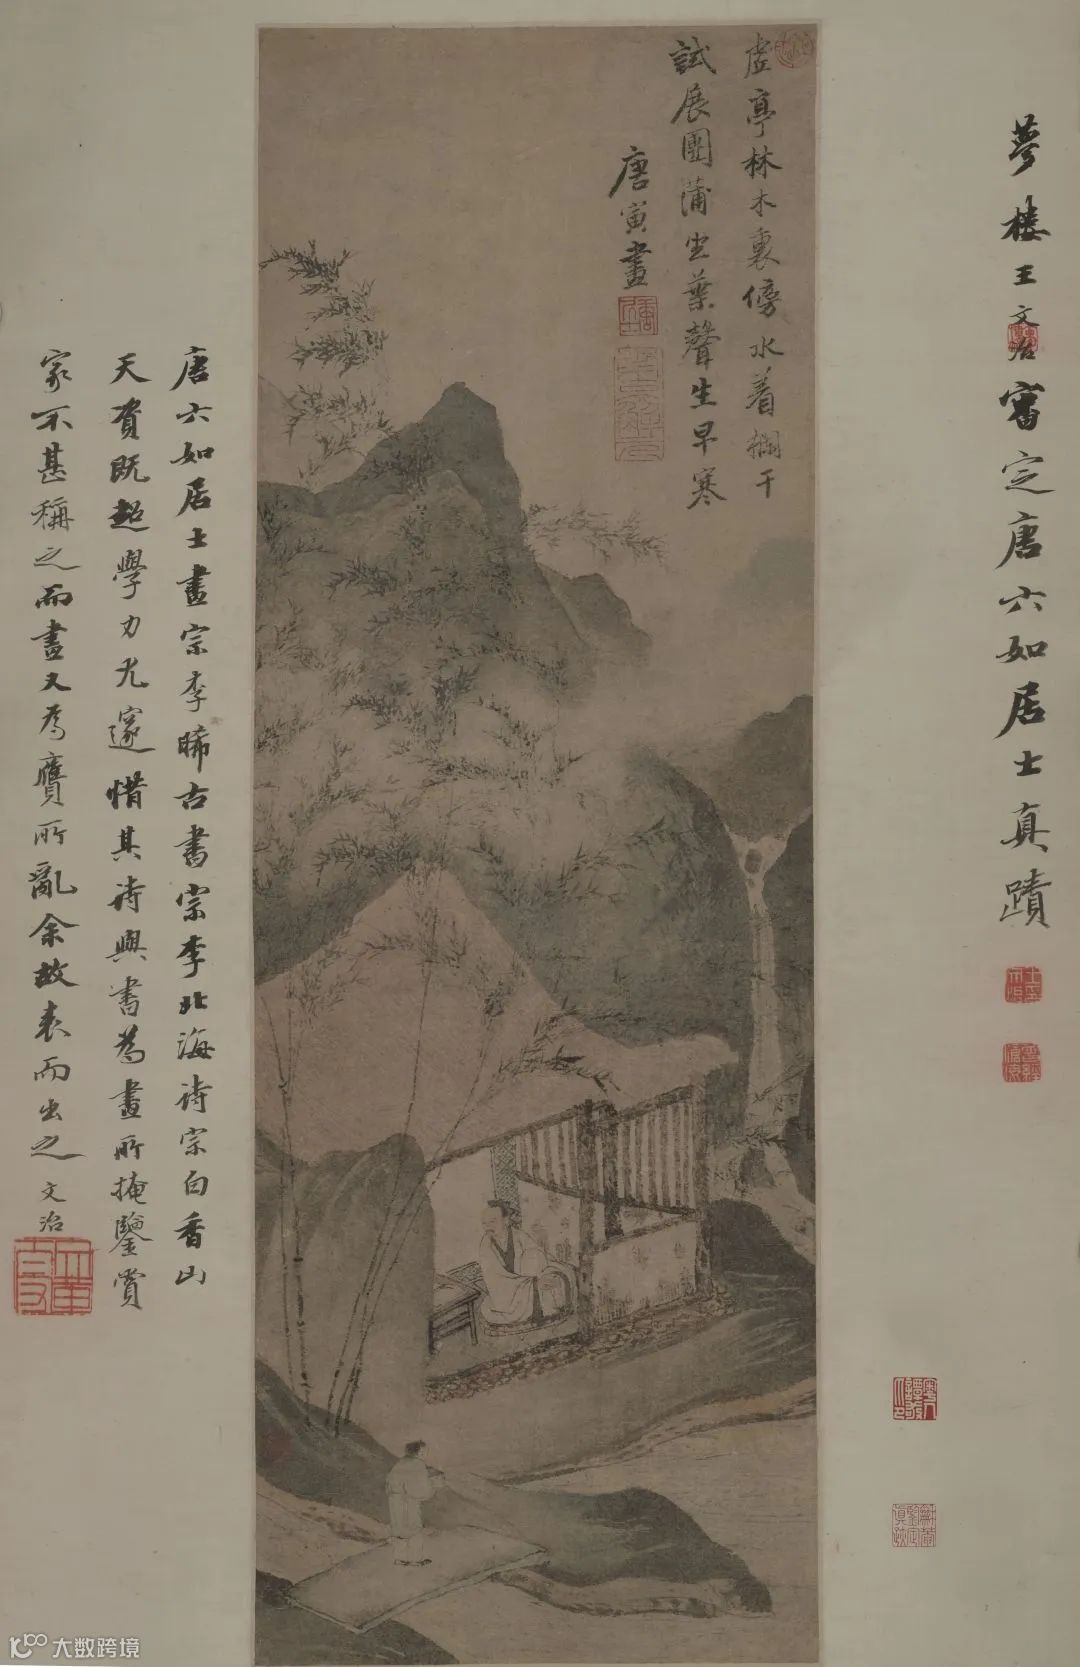 夢樓王文治審定唐六如居士真蹟
虛亭林木裏傍水着欄干
試展團蒲坐葉聲生早寒
唐寅畫
唐六如居士畫宗李晞古書宗李北海詩宗白香山
天資既超學力尤邃惜其詩與書為畫所掩鑒賞
家不甚稱之而畫又為贗所亂余故表而出之文治
大数跨境